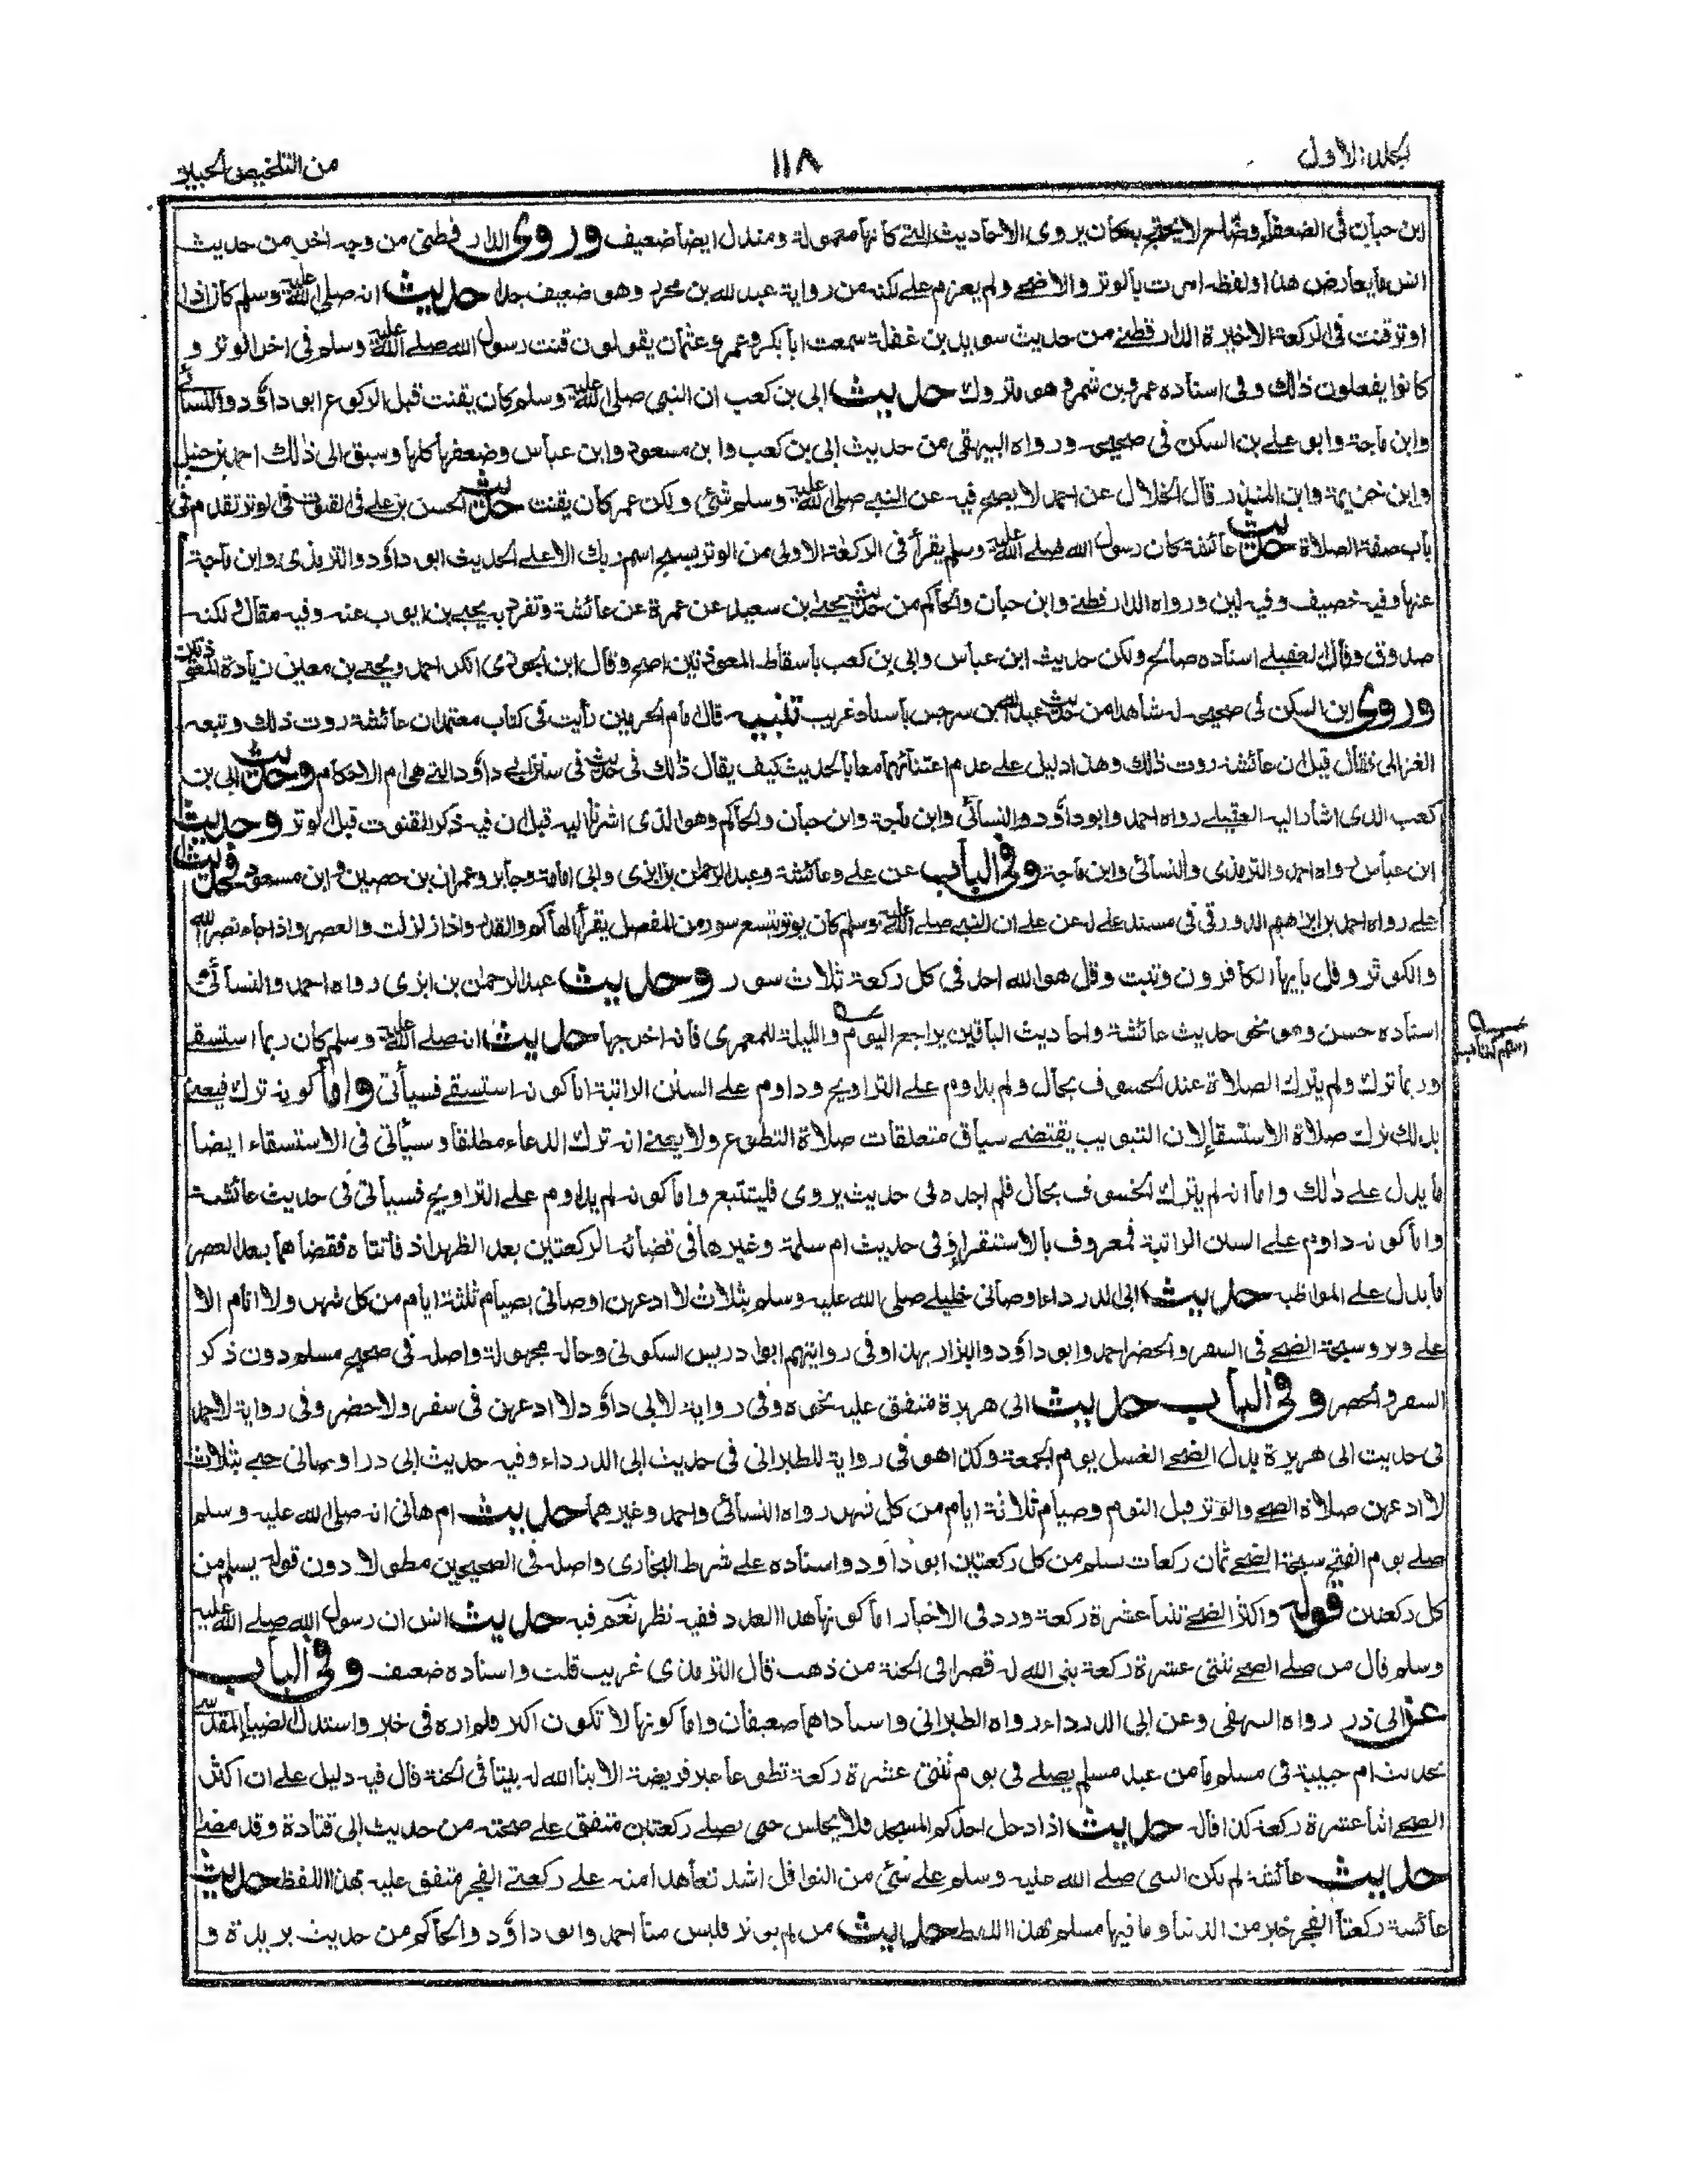 الجلد الاول
١١٨
من التلخيص الحبير
ابن حبان فى الضعفاء وضاح لا يحتج به كان يروى الاحاديث التى كانها معمولة ومندل ايضا ضعيف وروى الدارقطنى من وجه اخر من حديث
انس ما يعارض هذا ولفظه امرت بالوتر والاضحى ولم يعزم على لكنه من رواية عبد الله بن محرر وهو ضعيف جدا حديث انه صلى الله عليه وسلم كان اذا
اوتر قنت فى الركعة الاخيرة الدارقطنى من حديث سويد بن غفلة سمعت ابا بكر وعمر وعثمان يقولون قنت رسول الله صلى الله عليه وسلم فى اخر الوتر و
كانوا يفعلون ذلك وفى اسناده عمرو بن شمر وهو متروك حديث ابى بن كعب ان النبى صلى الله عليه وسلم كان يقنت قبل الركوع ابو داؤد والنسائى
وابن ماجة وابو على بن السكن فى صحيحه ورواه البيهقى من حديث ابى بن كعب وابن مسعود وابن عباس وضعفها كلها وسبق الى ذلك احمد بن حنبل
وابن خزيمة وابن المنذر قال الخلال عن احمد لا يصح فيه عن النبى صلى الله عليه وسلم شئ ولكن عمر كان يقنت حديث الحسن بن على فى القنوت فى الوتر تقدم فى
باب صفة الصلاة حديث عائشة كان رسول الله صلى الله عليه وسلم يقرأ فى الركعة الاولى من الوتر بسبح اسم ربك الاعلى الحديث ابو داؤد والترمذى وابن ماجة
عنها وفيه خصيف وفيه لين ورواه الدارقطنى وابن حبان والحاكم من حديث يحيى بن سعيد عن عمرة عن عائشة وتفرد به يحيى بن ايوب عنه وفيه مقال ولكنه
صدوق وقال العقيلى اسناده صالح ولكن حديث ابن عباس وابى بن كعب باسقاط المعوذتين اصح وقال ابن الجوزى انكر احمد ويحيى بن معين زيادة المعوذتين
وروى ابن السكن فى صحيحه له شاهدا من حديث عبد الله بن سرجس باسناد غريب تنبيه قال امام الحرمين رأيت فى كتاب معتمد ان عائشة روت ذلك وتبعه
الغزالى فقال قيل ان عائشة روت ذلك وهذا دليل على عدم اعتنائهما معا بالحديث كيف يقال ذلك فى حديث فى سنن ابى داؤد التى هى ام الاحكام وحديث ابى بن
كعب الذى اشار اليه العقيلى رواه احمد وابو داؤد والنسائى وابن ماجة وابن حبان والحاكم وهو الذى اشرنا اليه قبل ان فيه ذكر القنوت قبل الوتر وحديث
ابن عباس رواه احمد والترمذى والنسائى وابن ماجة وفى الباب عن على وعائشة وعبد الرحمن بن ابزى وابى امامة وجابر وعمران بن حصين وابن مسعود فحديث
على رواه احمد بن ابراهيم الدورقى فى مسند على له عن على ان النبى صلى الله عليه وسلم كان يوتر بتسع سور من المفصل يقرأ الهاكم والقدر واذا زلزلت والعصر واذا جاء نصر الله
والكوثر وقل يايها الكافرون وتبت وقل هو الله احد فى كل ركعة ثلاث سور وحديث عبد الرحمن بن ابزى رواه احمد والنسائى
اسناده حسن وهو نحو حديث عائشة واحاديث الباقين يراجع اليوم والليلة للمعمرى فانه اخرجها حديث انه صلى الله عليه وسلم كان ربما استسقى
وربما ترك ولم يترك الصلاة عند الخسوف بحال ولم يداوم على التراويح وداوم على السنن الراتبة اما كونه استسقى فسيأتى واما كونه ترك فيعنى
بذلك ترك صلاة الاستسقاء لان التبويب يقتضى سياق متعلقات صلاة التطوع ولا يعنى انه ترك الدعاء مطلقا وسيأتى فى الاستسقاء ايضا
ما يدل على ذلك واما انه لم يترك الخسوف بحال فلم اجده فى حديث يروى فليتتبع واما كونه لم يداوم على التراويح فسيأتى فى حديث عائشة
واما كونه داوم على السنن الراتبة فمعروف بالاستقراء وفى حديث ام سلمة وغيرها فى قضائه الركعتين بعد الظهر اذ فاتتاه فقضاهما بعد العصر
ما يدل على المواظبة حديث ابى الدرداء اوصانى خليلى صلى الله عليه وسلم بثلاث لا ادعهن اوصانى بصيام ثلثة ايام من كل شهر ولا انام الا
على وتر وسبحة الضحى فى السفر والحضر احمد وابو داؤد والبزار بهذا وفى روايتهم ابو ادريس السكونى وحاله مجهولة واصله فى صحيح مسلم دون ذكر
السفر والحضر وفى الباب حديث ابى هريرة متفق عليه نحوه وفى رواية لابى داؤد لا ادعهن فى سفر ولا حضر وفى رواية لاحمد
فى حديث ابى هريرة بدل الضحى الغسل يوم الجمعة وكذا هو فى رواية للطبرانى فى حديث ابى الدرداء وفيه حديث ابى ذر اوصانى حبى بثلاث
لا ادعهن صلاة الضحى والوتر قبل النوم وصيام ثلاثة ايام من كل شهر رواه النسائى واحمد وغيرهما حديث ام هانى انه صلى الله عليه وسلم
صلى يوم الفتح سبحة الضحى ثمان ركعات سلم من كل ركعتين ابو داؤد واسناده على شرط البخارى واصله فى الصحيحين مطولا دون قوله يسلم من
كل ركعتين قوله واكثر الضحى ثنتا عشرة ركعة ورد فى الاخبار اما كونها هذا العدد ففيه نظر نعم فيه حديث انس ان رسول الله صلى الله عليه
وسلم قال من صلى الضحى ثنتى عشرة ركعة بنى الله له قصرا فى الجنة من ذهب قال الترمذى غريب قلت واسناده ضعيف وفى الباب
عن ابى ذر رواه البيهقى وعن ابى الدرداء رواه الطبرانى واسنادهما ضعيفان واما كونها لا تكون اكثر فلم اره فى خبر واستدل الضياء المقدسى
بحديث ام حبيبة فى مسلم ما من عبد مسلم يصلى فى يوم ثنتى عشرة ركعة تطوعا غير فريضة الا بنا الله له بيتا فى الجنة قال فيه دليل على ان اكثر
الضحى اثنا عشرة ركعة كذا قال حديث اذا دخل احدكم المسجد فلا يجلس حتى يصلى ركعتين متفق على صحته من حديث ابى قتادة وقد مضى
حديث عائشة لم يكن النبى صلى الله عليه وسلم على شئ من النوافل اشد تعاهدا منه على ركعتى الفجر متفق عليه بهذا اللفظ حديث
عائشة ركعتا الفجر خير من الدنيا وما فيها مسلم بهذا اللفظ حديث من لم يوتر فليس منا احمد وابو داؤد والحاكم من حديث بريدة و